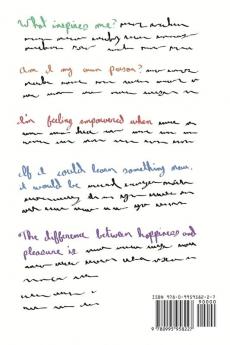 What inspires me?
Am I my own person?
I'm feeling empowered when
If I could learn something new,
I would be
The difference between happiness and
pleasure is
90000
9 780995 958227